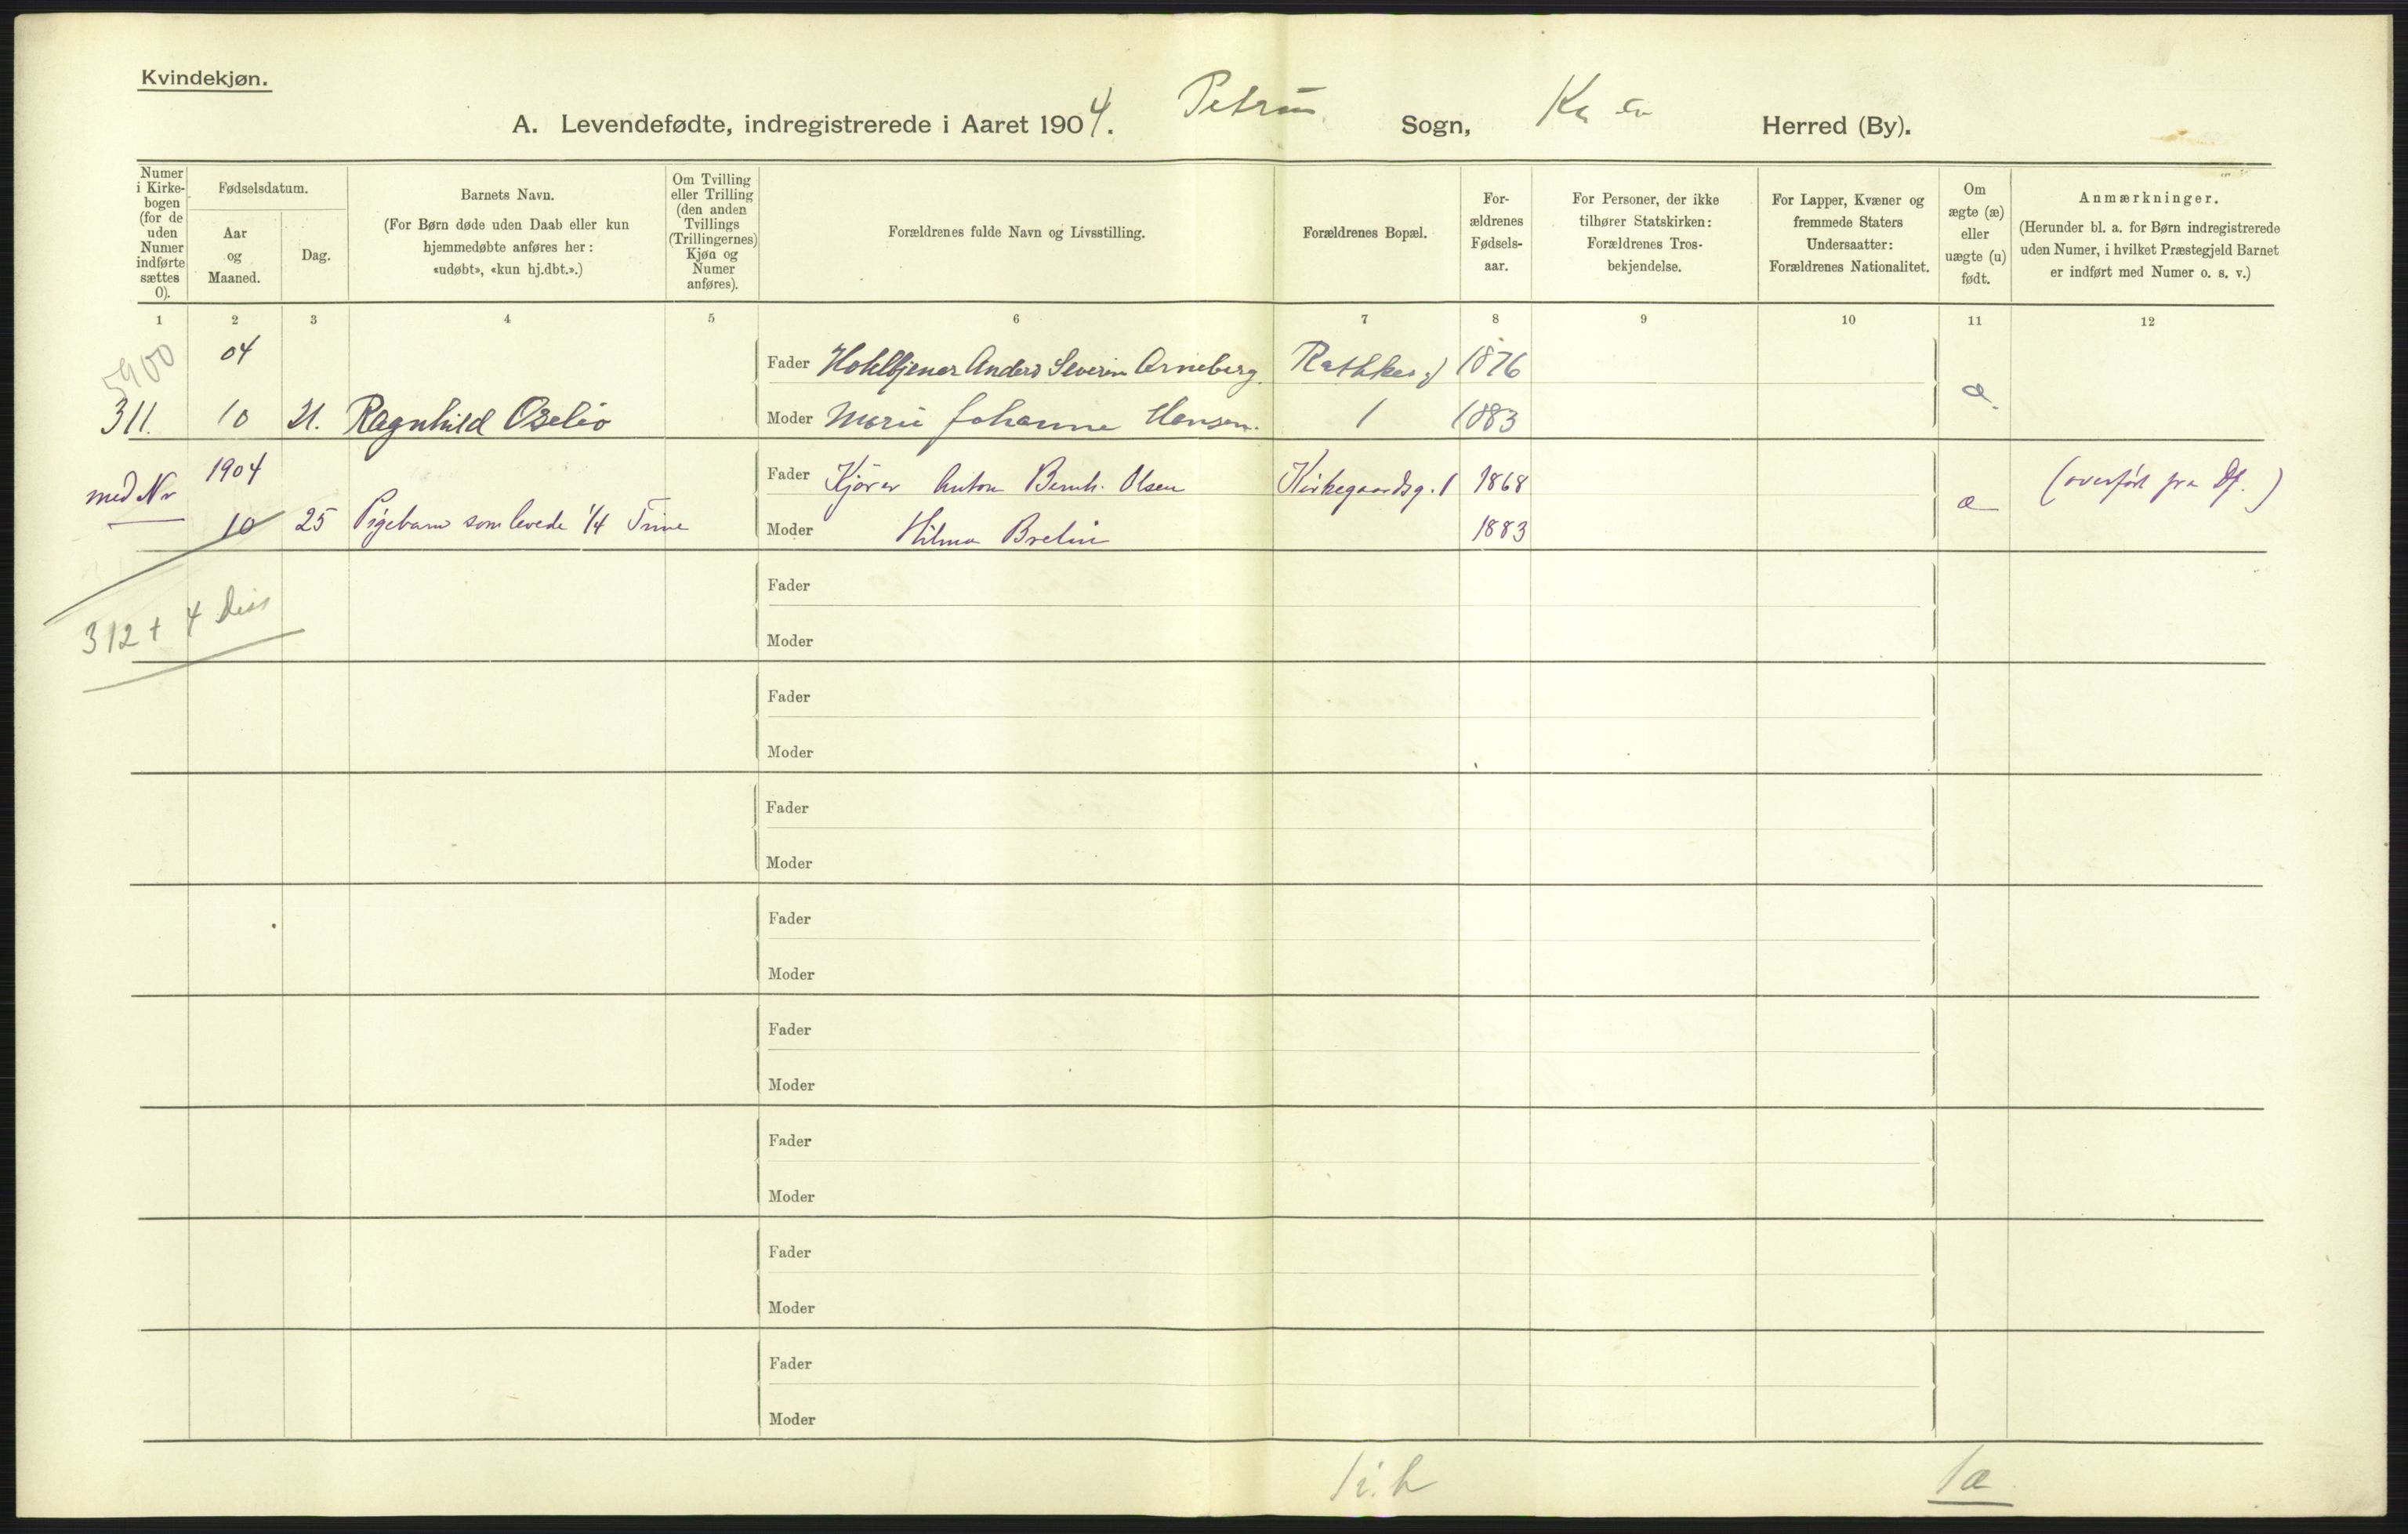 Kvindekjøn.
A. Levendefødte, indregistrerede i Aaret 1904. Petrus Sogn, Kra Herred (By).
Numer i Kirke-bogen (for de uden Numer indførte sættes 0).
Fødselsdatum.
Aar og Maaned.
Dag.
Barnets Navn.
(For Børn døde uden Daab eller kun
hjemmedøbte anføres her:
«udøbt», «kun hj.dbt.».)
Om Tvilling
eller Trilling
(den anden
Tvillings
(Trillingernes)
Kjøn og
Numer
anføres).
Forældrenes fulde Navn og Livsstilling.
Forældrenes Bopæl.
For-
ældrenes
Fødsels-
aar.
For Personer, der ikke
tilhører Statskirken:
Forældrenes Tros-
bekjendelse.
For Lapper, Kvæner og
fremmede Staters
Undersaatter:
Forældrenes Nationalitet.
Om
ægte (æ)
eller
uægte (u)
født.
Anmærkninger.
(Herunder bl. a. for Børn indregistrerede
uden Numer, i hvilket Præstegjeld Barnet
er indført med Numer o. s. v.)
1 2 3 4 5 6 7 8 9 10 11 12
5900
04 Fader Hoteltjener Anders Severin Arneberg Rathkes g 1876
311. 10 21. Ragnhild Oselio Moder Marie Johanne Hansen. 1 1883 æ.
med Nr 1904 Fader Kjører Anton Bernh. Olsen Kirkegaardsg. 1 1868 æ (overført fra Df.)
10 25 Pigebarn som levede 1/4 Time Moder Hilma Brelin 1883
Fader
312 + 4 Diss
Moder
Fader
Moder
Fader
Moder
Fader
Moder
Fader
Moder
Fader
Moder
Fader
Moder
Fader
Moder
1 i. h 1æ